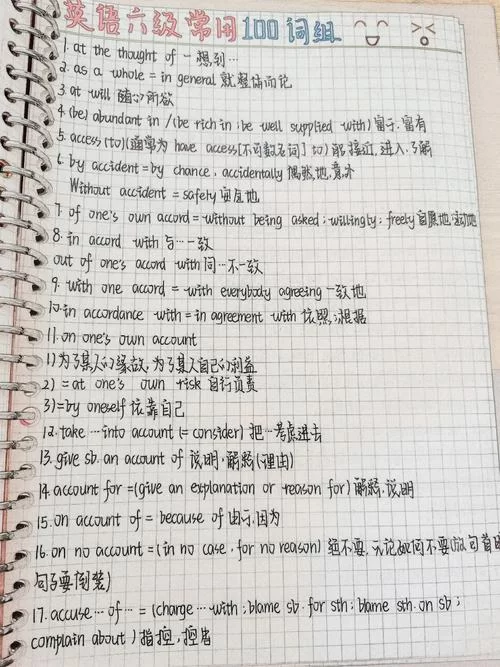 英语六级常用100词组
1. at the thought of 一想到…
2. as a whole = in general 就整体而论
3. at will 随心所欲
4. (be) abundant in /(be rich in ; be well supplied with) 富于，富有
5. access (to) (通常为 have access [不可数名词] to) 能接近，进入，了解
6. by accident = by chance , accidentally 偶然地，意外
Without accident = safely 安全地
7. of one's own accord = without being asked ; willingly ; freely 自愿地，主动地
8. in accord with 与…一致
out of one's accord with 同…不一致
9. with one accord = with everybody agreeing 一致地
10. in accordance with = in agreement with 依照；根据
11. on one's own account
1) 为了某人的缘故，为了某人自己的利益
2) = at one's own risk 自行负责
3) = by oneself 依靠自己
12. take … into account (= consider) 把…考虑进去
13. give sb. an account of 说明，解释(理由)
14. account for = (give an explanation or reason for) 解释，说明
15. on account of = because of 由于，因为
16. on no account = (in no case , for no reason) 绝不要，无论如何不要(放句首时
句子要倒装)
17. accuse … of … = (charge … with ; blame sb. for sth ; blame sth. on sb ;
complain about ) 指控，控告